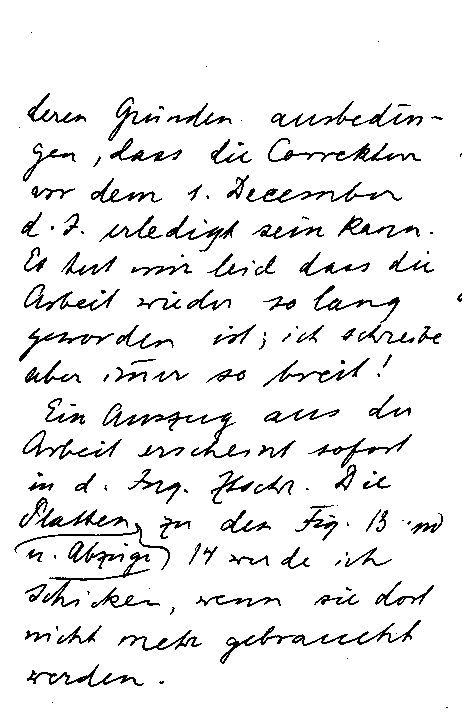 deren Gründen ausbedün-
gen, dass die Correktur
vor dem 1. December
d. J. erledigt sein kann.
Es tut mir leid dass die
Arbeit wieder so lang
geworden ist; ich schreibe
aber im̅er so breit!
Ein Auszug aus der
Arbeit erscheint sofort
in d. Ing. Ztschr. Die
Platten zu den Fig. 13 und
u. Abzüge 14 werde ich
schicken, wenn sie dort
nicht mehr gebraucht
werden.